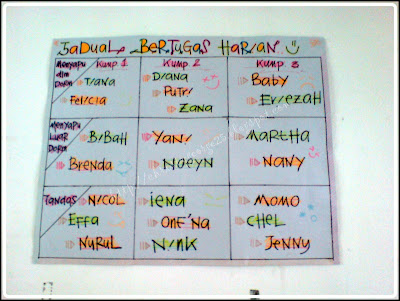 JADUAL BERTUGAS HARIAN
Kump 1 Kump 2 Kump 3
Menyapu dlm Dorm
Tiana
Felicia
Diana
Putri
Zana
Baby
Eviezah
Menyapu luar Dorm
Bibah
Brenda
Yani
Noeyn
Martha
Nany
Tandas
Nicol
Effa
Nurul
iena
One'na
Nink
Momo
Chel
Jenny